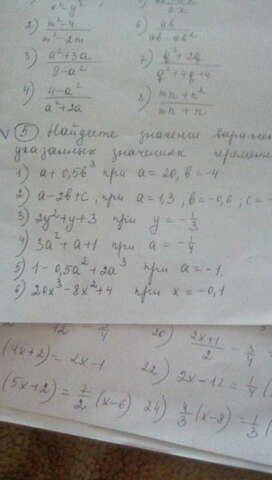 x²y²
2x
2) m²-4 / m²-2m
6) ab / ab-ab²
3) a²+3a / 9-a²
7) q²+2q / q²+4q+4
4) 4-a² / a²+2a
8) mn+n² / mn+n
V ⑤ Найдите значение
указанных значениях
1) a+0,5b³ при a=20, b=-4
2) a-2b+c, при a=1,3, b=-0,6, c=-
3) 2y²+y+3 при y=-1/3
4) 3a²+a+1 при a=-1/4
5) 1-0,5a²+2a³ при a=-1.
6) 20x³-8x²+4 при x=-0,1
12
20) 2x+1 / 2 -
(4x+2)=2x-1
22) 2x-12=1/4(
(5x+2)=7/2(x-6)
24) 4/3(x-8)=1/3(